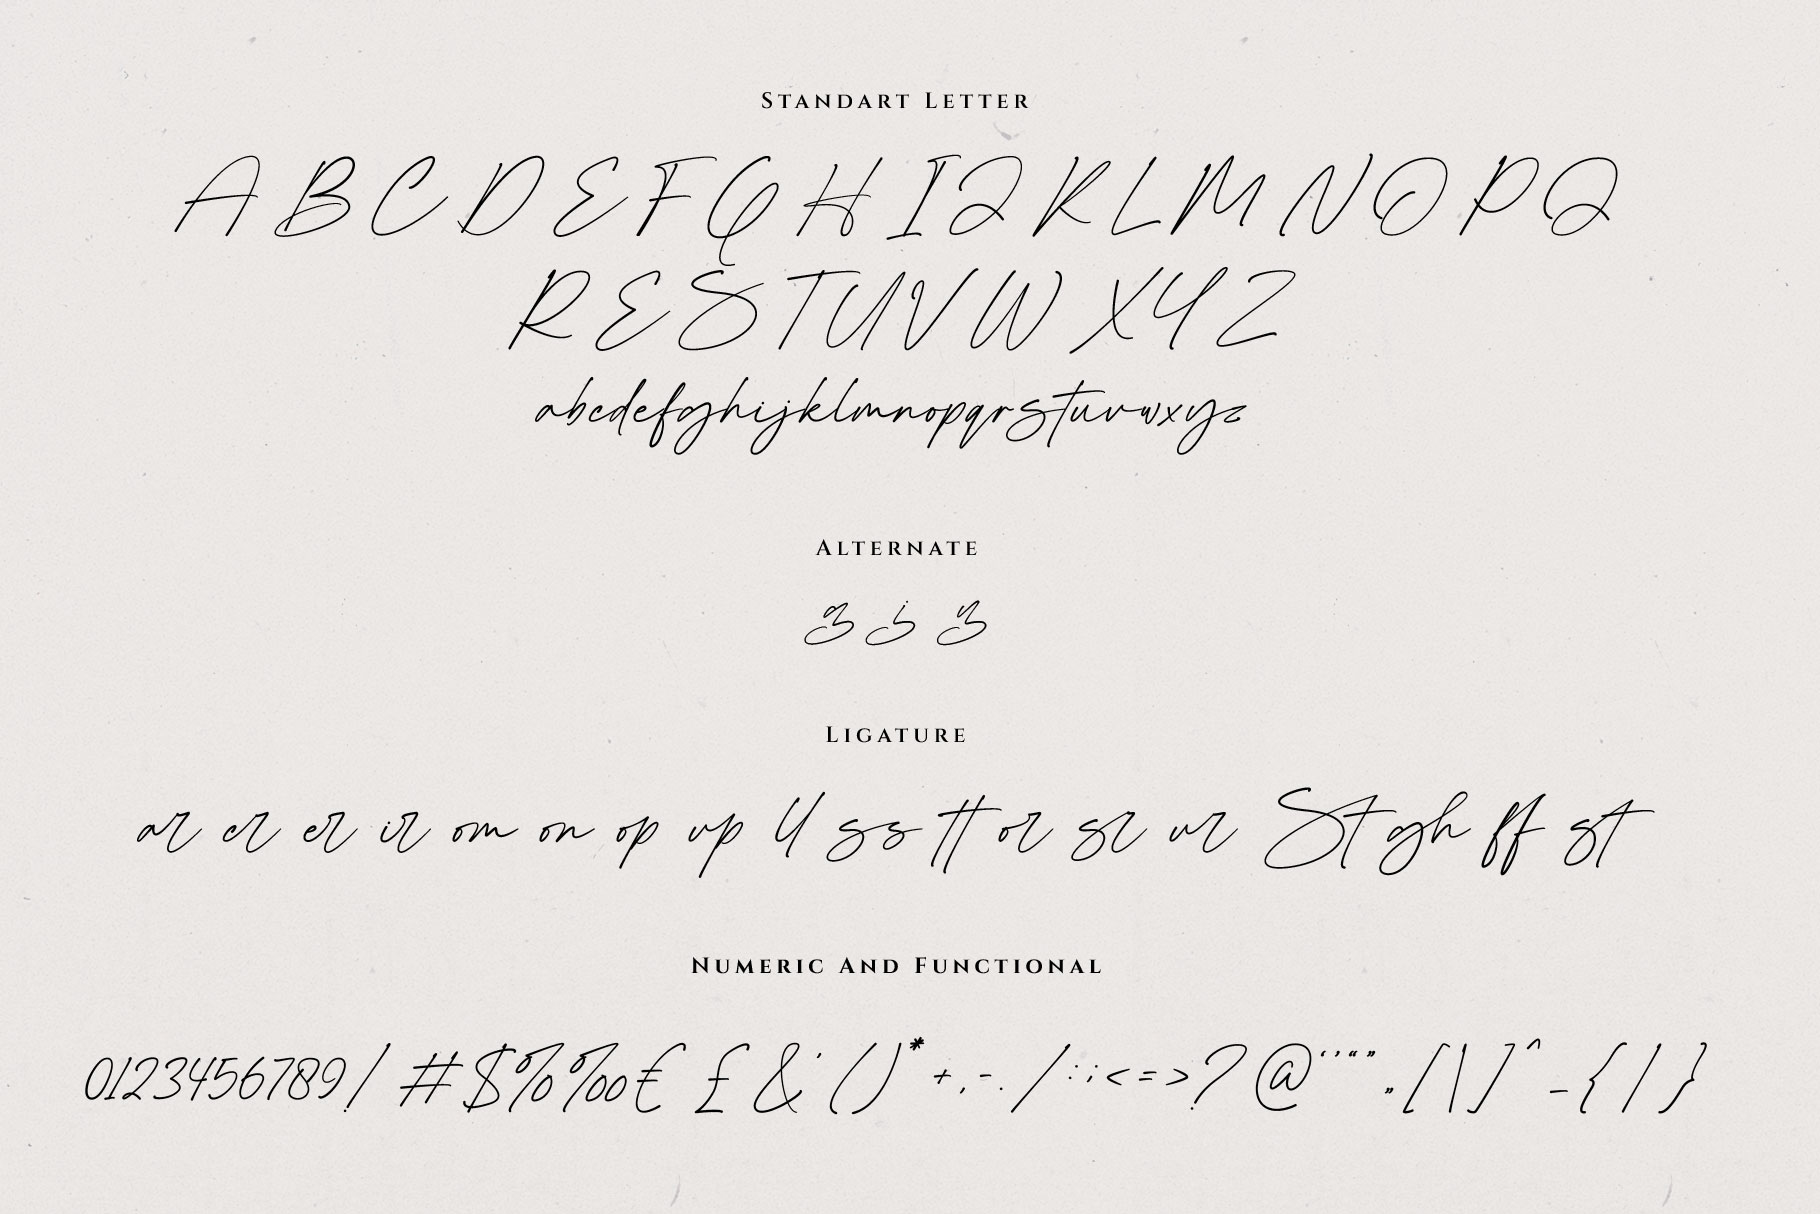 Standart Letter
A B C D E F G H I J K L M N O P Q
R E S T U V W X Y Z
abcdefghijklmnopqrstuvwxyz
Alternate
g j y
Ligature
ar cr er ir om on op up ll ss tt or sr ur St gh ff st
Numeric And Functional
0123456789! #$%‰€ £ & ' ( )* + , - . / : ; < = > ? @ ‘ ’ “ ” „ [ \ ] ^ _ { | }